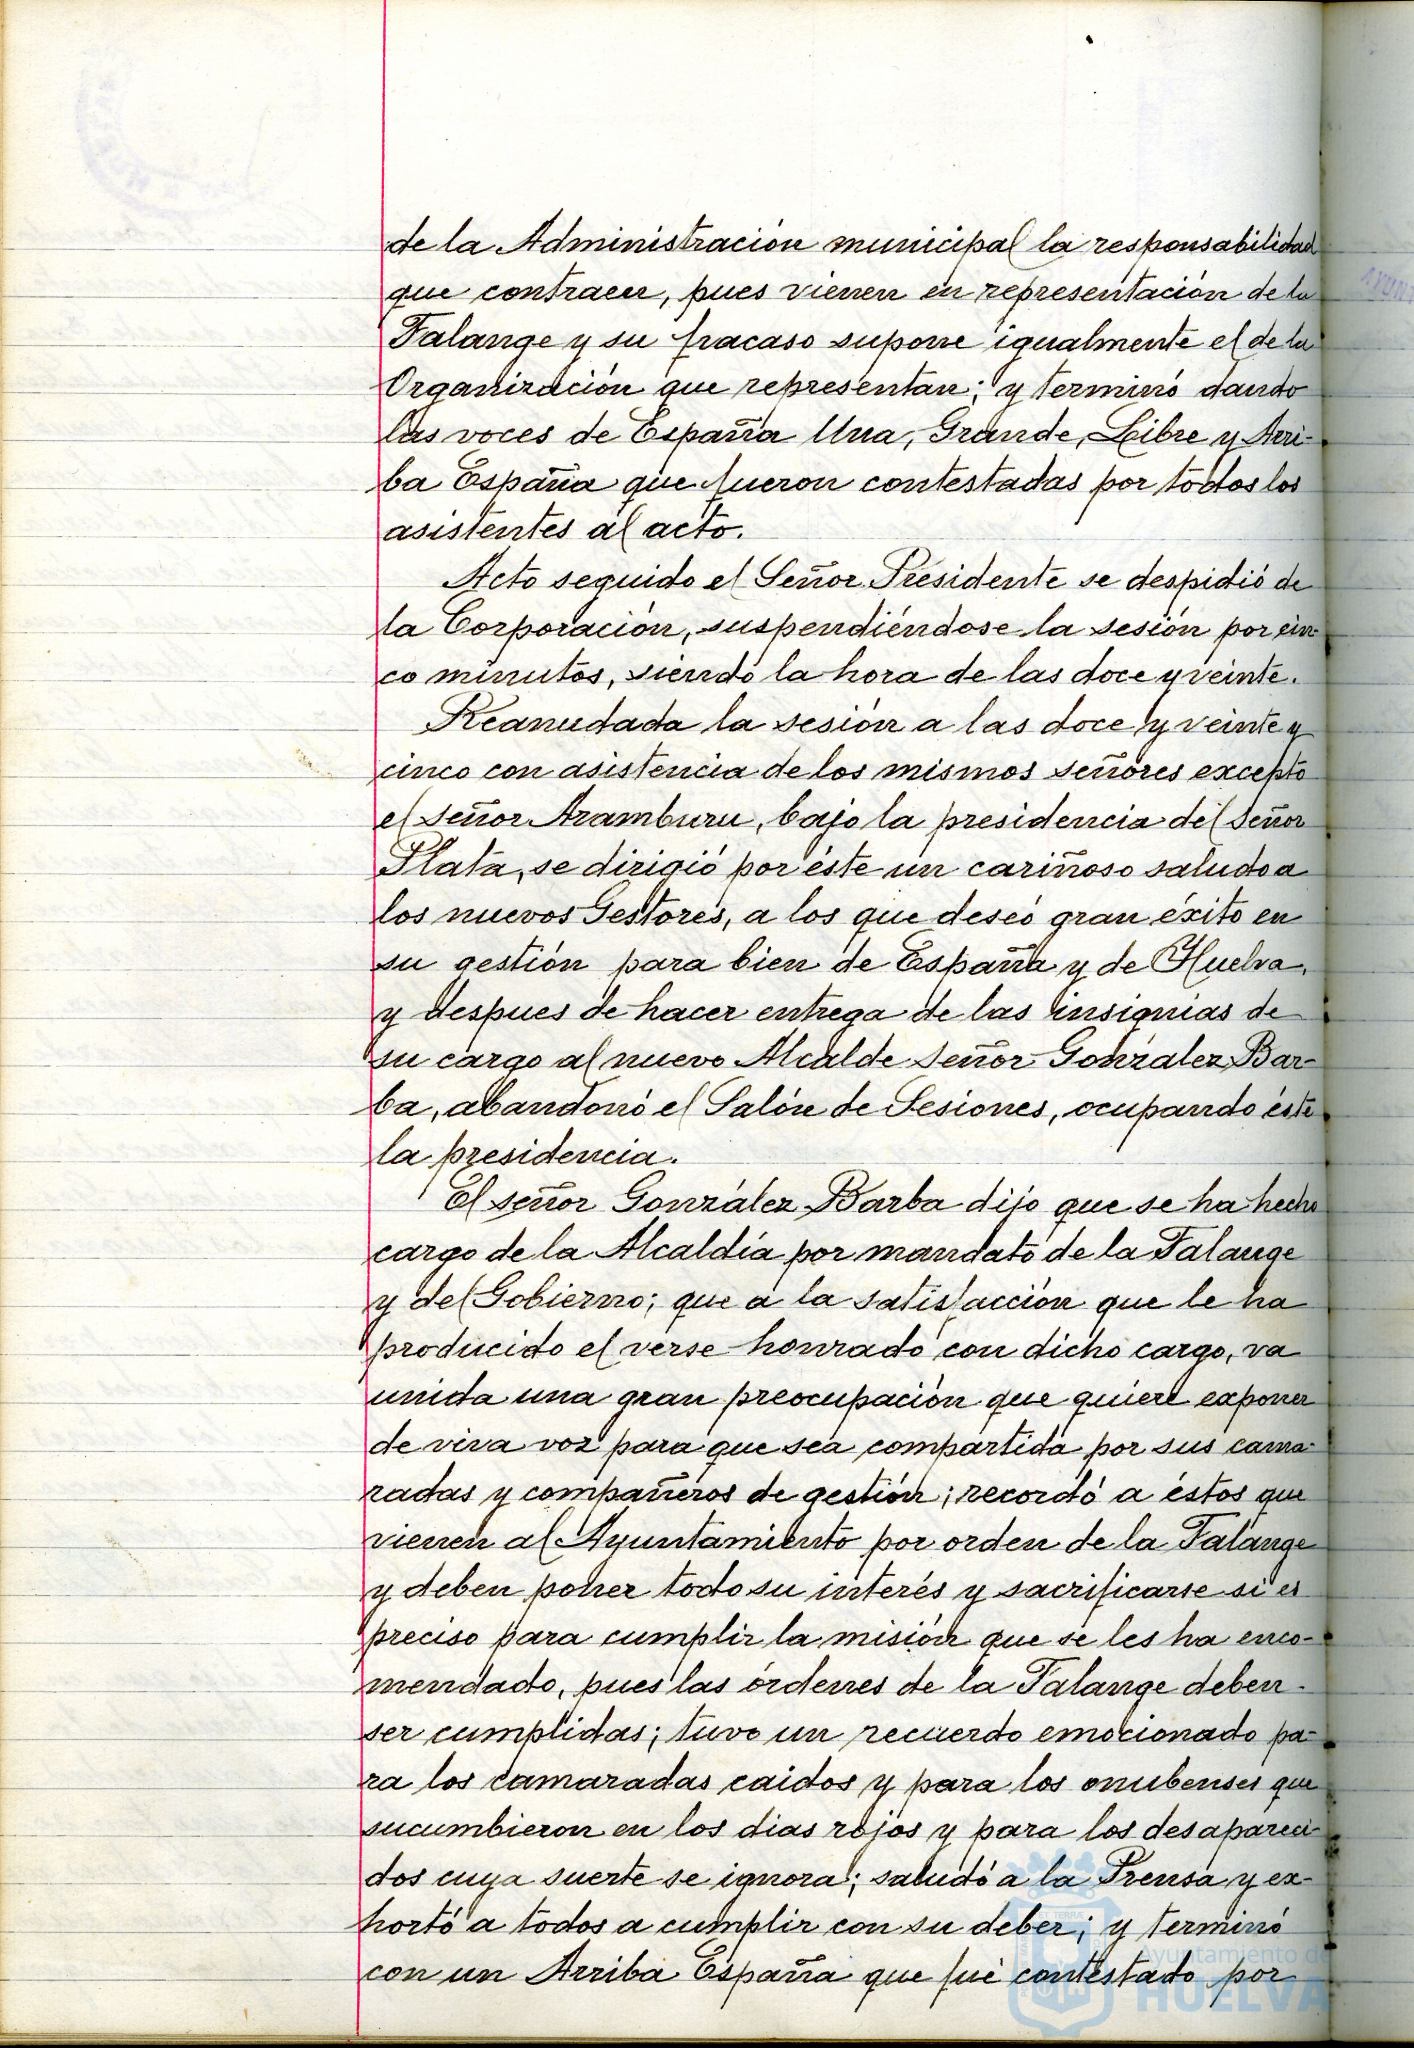 de la Administración municipal la responsabilidad
que contraen, pues vienen en representación de la
Falange y su fracaso supone igualmente el de la
Organización que representan; y terminó dando
las voces de España Una, Grande, Libre y Arri-
ba España que fueron contestadas por todos los
asistentes al acto.
Acto seguido el Señor Presidente se despidió de
la Corporación, suspendiéndose la sesión por cin-
co minutos, siendo la hora de las doce y veinte.
Reanudada la sesión a las doce y veinte y
cinco con asistencia de los mismos señores excepto
el señor Aramburu, bajo la presidencia del Señor
Plata, se dirigió por éste un cariñoso saludo a
los nuevos Gestores, a los que deseó gran éxito en
su gestión para bien de España y de Huelva,
y despues de hacer entrega de las insignias de
su cargo al nuevo Alcalde Señor González Bar-
ba, abandonó el Salón de Sesiones, ocupando éste
la presidencia.
El señor González Barba dijo que se ha hecho
cargo de la Alcaldía por mandato de la Falange
y del Gobierno; que a la satisfacción que le ha
producido el verse honrado con dicho cargo, va
unida una gran preocupación que quiere exponer
de viva voz para que sea compartida por sus cama-
radas y compañeros de gestión; recordó a éstos que
vienen al Ayuntamiento por orden de la Falange
y deben poner todo su interés y sacrificarse si es
preciso para cumplir la misión que se les ha enco-
mendado, pues las órdenes de la Falange deben
ser cumplidas; tuvo un recuerdo emocionado pa-
ra los camaradas caidos y para los onubenses que
sucumbieron en los dias rojos y para los desapareci-
dos cuya suerte se ignora; saludó a la Prensa y ex-
hortó a todos a cumplir con su deber; y terminó
con un Arriba España que fué contestado por
Ayuntamiento de
HUELVA